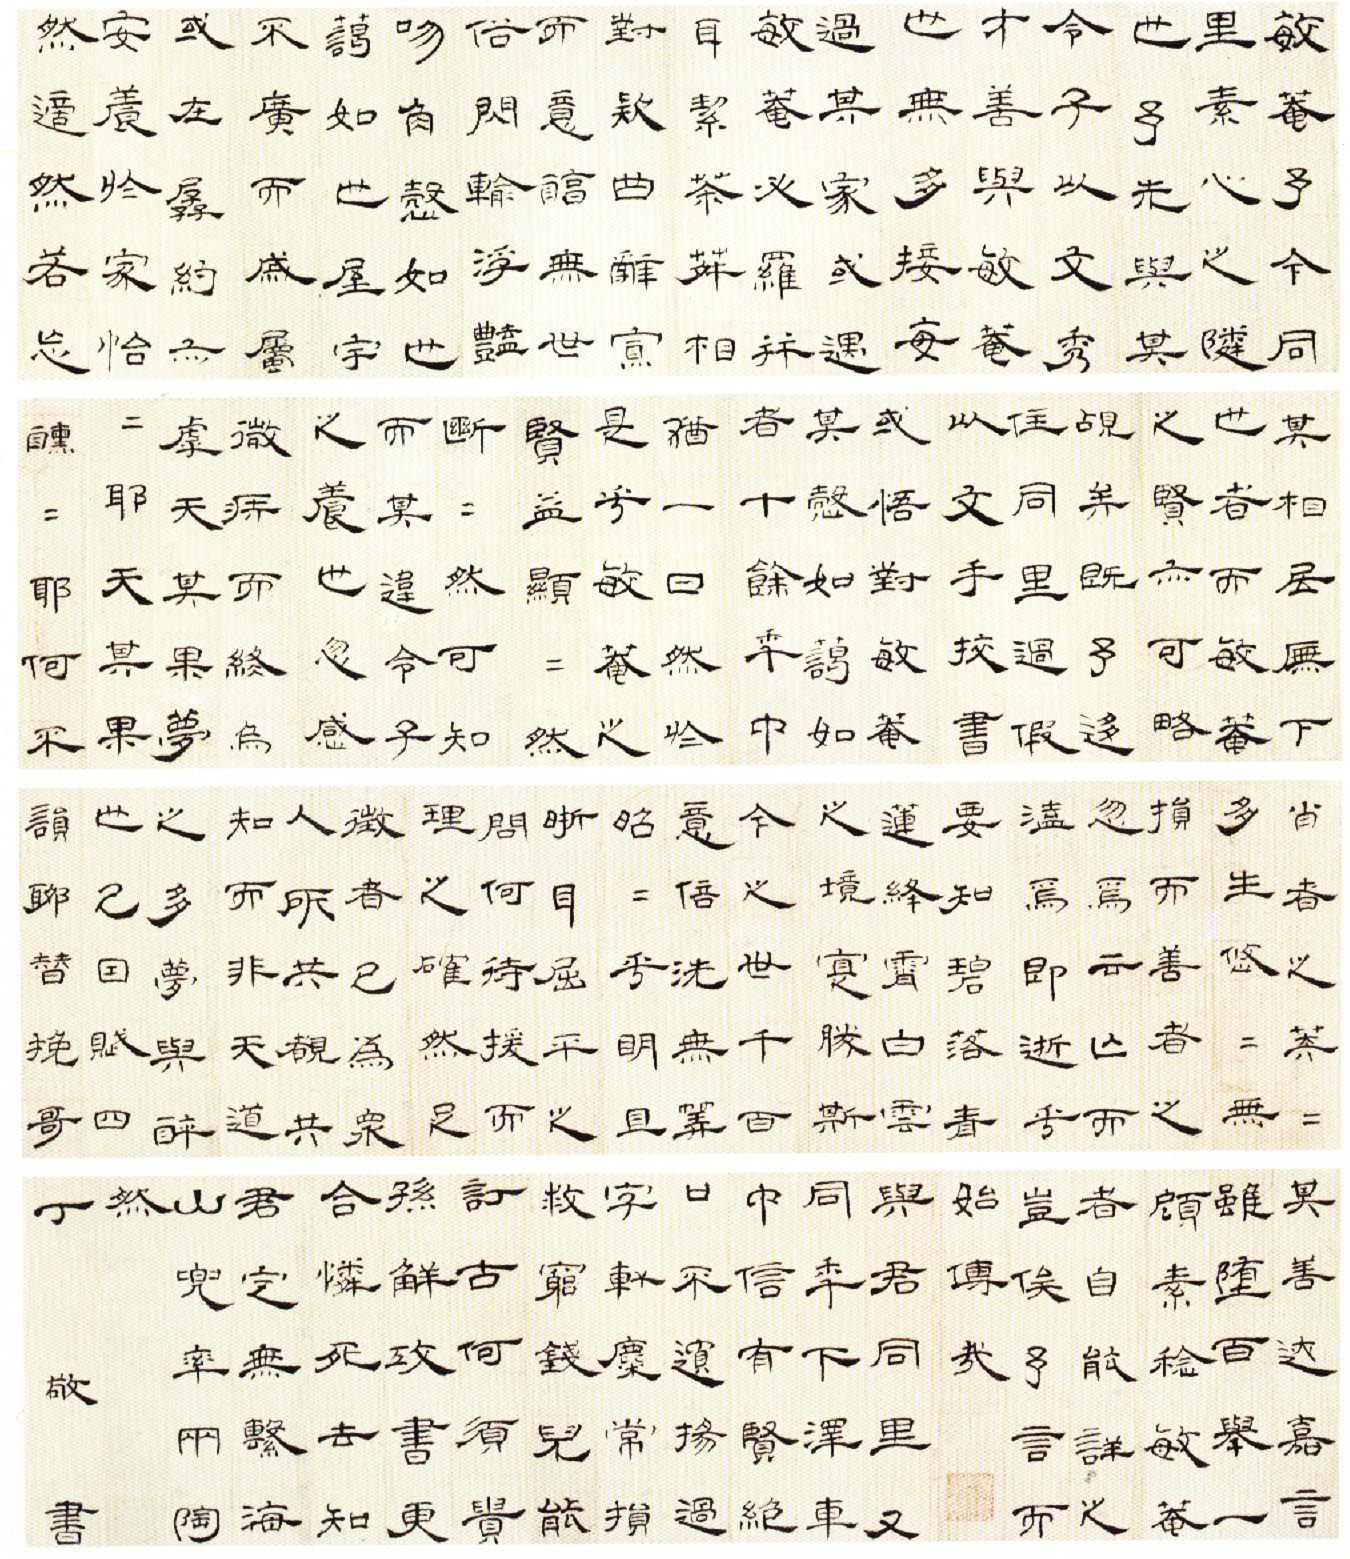 敏菴予今同
里素心之隣
也予先與其
令子以文秀
才善與敏菴
也無多接每
過某家或遇
敏菴必羅拜
耳絜茶莽相
對欵曲辭寡
而意馣無世
俗閃輸浮豔
吻自愨如也
藹如也屋宇
不廣而戚屬
或在孱約而
安養於家怡
然適然若忘
其相居廡下
也者而敏菴
之賢亦可略
覘矣既予迻
住同里過假
以文手挍書
或悟對敏菴
某愨如藹如
者十餘年中
猶一日然於
是乎敏菴之
賢益顯二然
斷二然可知
而某違令子
之養也忽感
微疾而終烏
虖天其果夢
二耶天其果
醺二耶何不
肖者之棻二
多生悠二無
損而善者之
忽焉云亡而
溘焉即逝乎
要知碧落青
蓮絳霄白雲
之境寔勝斯
今之世千百
意倍洗無筭
昭二乎明且
晣耳屈平之
問何待援而
理之確然足
徵者已為衆
人所共覩共
知而非天道
之多夢與醉
也已因賦四
韻聊替挽哥
其善迖嘉言
雖墮百舉一
顧素稔敏菴
者自能詳之
豈俟予言而
始傳哉
與君同里又
同年下澤車
中信有賢絕
口不遺揚過
字軗麋常損
救窮錢兒能
訂古何須貴
孫解攻書更
合憐死去知
君定無繫海
山兜率兩陶
然
丁敬書